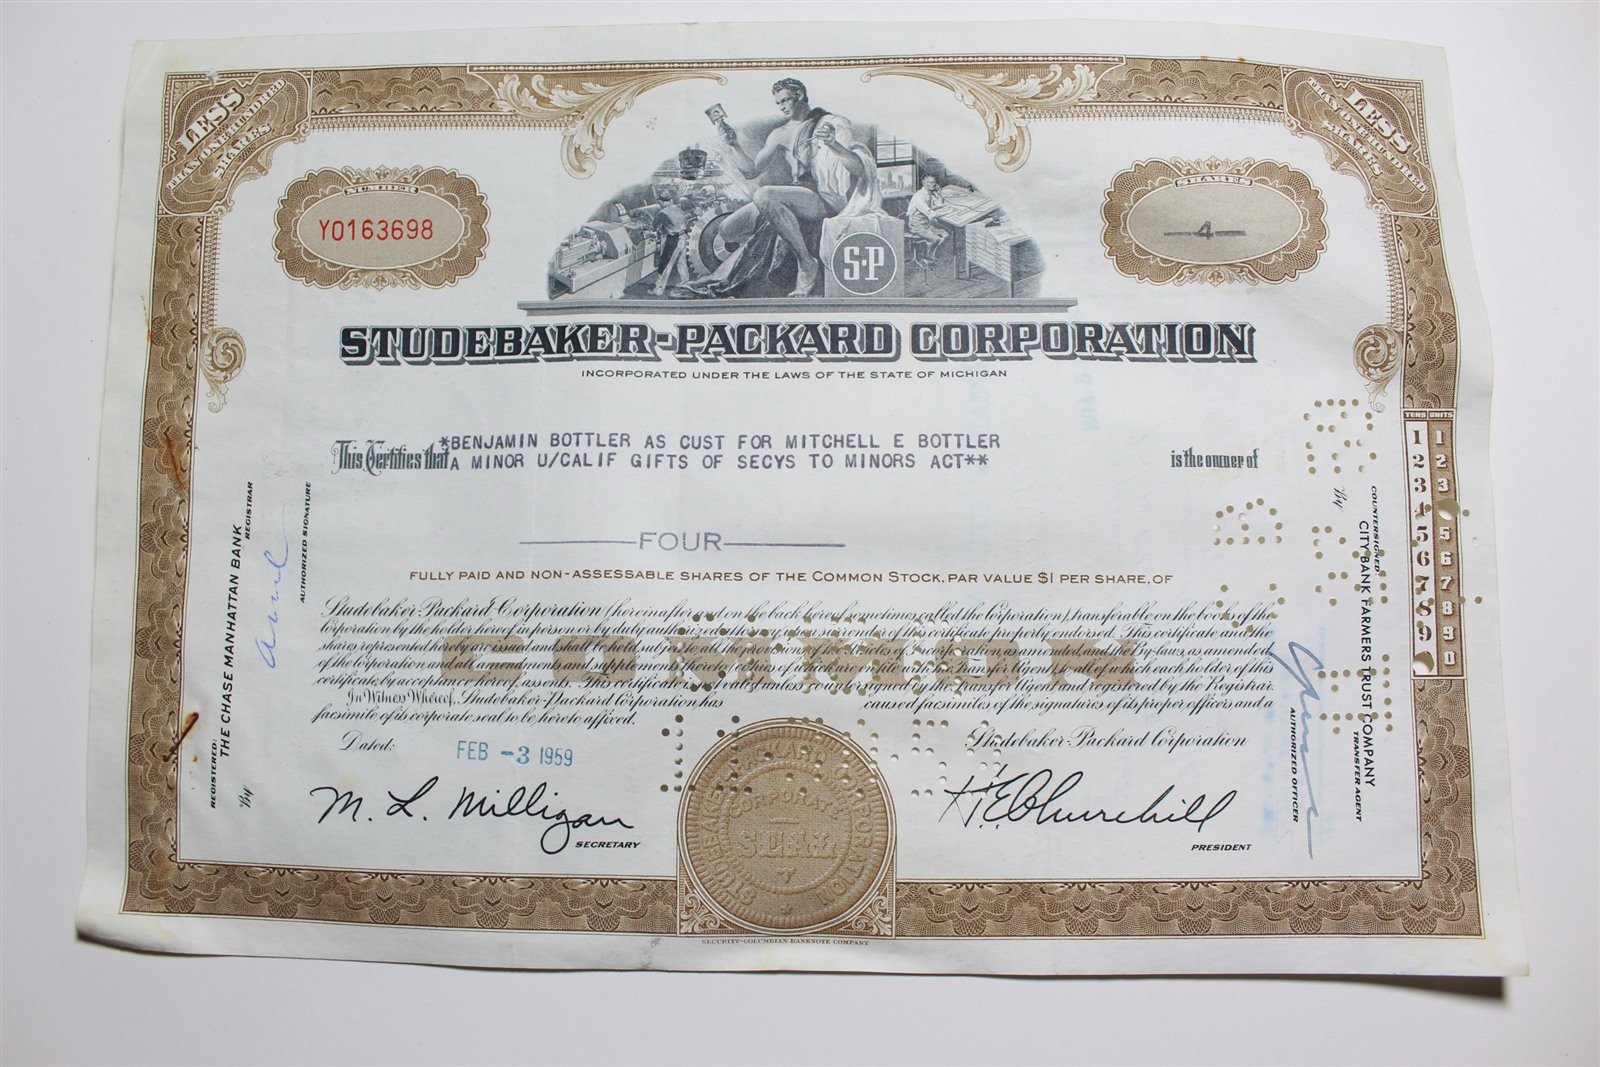 LESS
THAN ONE HUNDRED
SHARES
LESS
THAN ONE HUNDRED
SHARES
NUMBER
Y0163698
SHARES
4
S-P
STUDEBAKER-PACKARD CORPORATION
INCORPORATED UNDER THE LAWS OF THE STATE OF MICHIGAN
This Certifies that
*BENJAMIN BOTTLER AS CUST FOR MITCHELL E BOTTLER
A MINOR U/CALIF GIFTS OF SECYS TO MINORS ACT**
is the owner of
FOUR
FULLY PAID AND NON-ASSESSABLE SHARES OF THE COMMON STOCK, PAR VALUE $1 PER SHARE, OF
Studebaker-Packard Corporation (hereinafter and on the back hereof sometimes called the Corporation), transferable on the books of the
Corporation by the holder hereof in person or by duly authorized attorney, upon surrender of this certificate properly endorsed. This certificate and the
shares represented hereby are issued and shall be held subject to all the provisions of the Articles of Incorporation, as amended, and the By-laws, as amended,
of the Corporation and all amendments and supplements thereto (copies of which are on file with the Transfer Agent) to all of which each holder of this
certificate, by acceptance hereof, assents. This certificate is not valid unless countersigned by the Transfer Agent and registered by the Registrar.
In Witness Whereof, Studebaker-Packard Corporation has caused facsimiles of the signatures of its proper officers and a
facsimile of its corporate seal to be hereto affixed.
Dated:
FEB -3 1959
Studebaker-Packard Corporation
M. L. Milligan
SECRETARY
H.E. Churchill
PRESIDENT
STUDEBAKER-PACKARD CORPORATION
CORPORATE
SEAL
SECURITY-COLUMBIAN BANKNOTE COMPANY
REGISTERED:
THE CHASE MANHATTAN BANK
REGISTRAR
By
AUTHORIZED SIGNATURE
COUNTERSIGNED
CITY BANK FARMERS TRUST COMPANY
TRANSFER AGENT
By
AUTHORIZED OFFICER
TENS UNITS
1 1
2 2
3 3
4
5 5
6 6
7 7
8 8
9 9
0